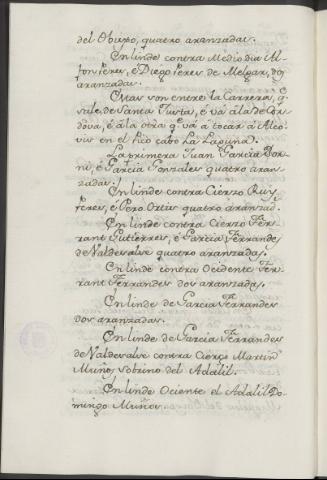 del Obispo, quatro aranzadas.
En linde contra Medio dia Al-
fon Peres, é Diego Peres de Melgar, dos
aranzadas.
Otras son entre la Carrera, q.
sale de Santa Justa, é vá á la de Cor-
dova, é á la otra q. vá á tocar á Alco-
vis en el pico cabo La Laguna.
La primera Juan Garcia Dor-
ni, é Garcia Gonzales quatro aran-
zadas.
En linde contra Cierzo Ruy
Peres, é Pero Ortis quatro aranzad.
En linde contra Cierzo Fer-
rant Gutierres, é Garcia Ferrandes
de Valdesalve quatro aranzadas.
En linde contra Ocidente Fer-
rant Ferrandes dos aranzadas.
En linde de Garcia Ferrandes
dos aranzadas.
En linde de Garcia Ferrandes
de Valdesalve contra Cierço Martin
Muños sobrino del Adalil.
En linde Ociente el Adalil Do-
mingo Muños